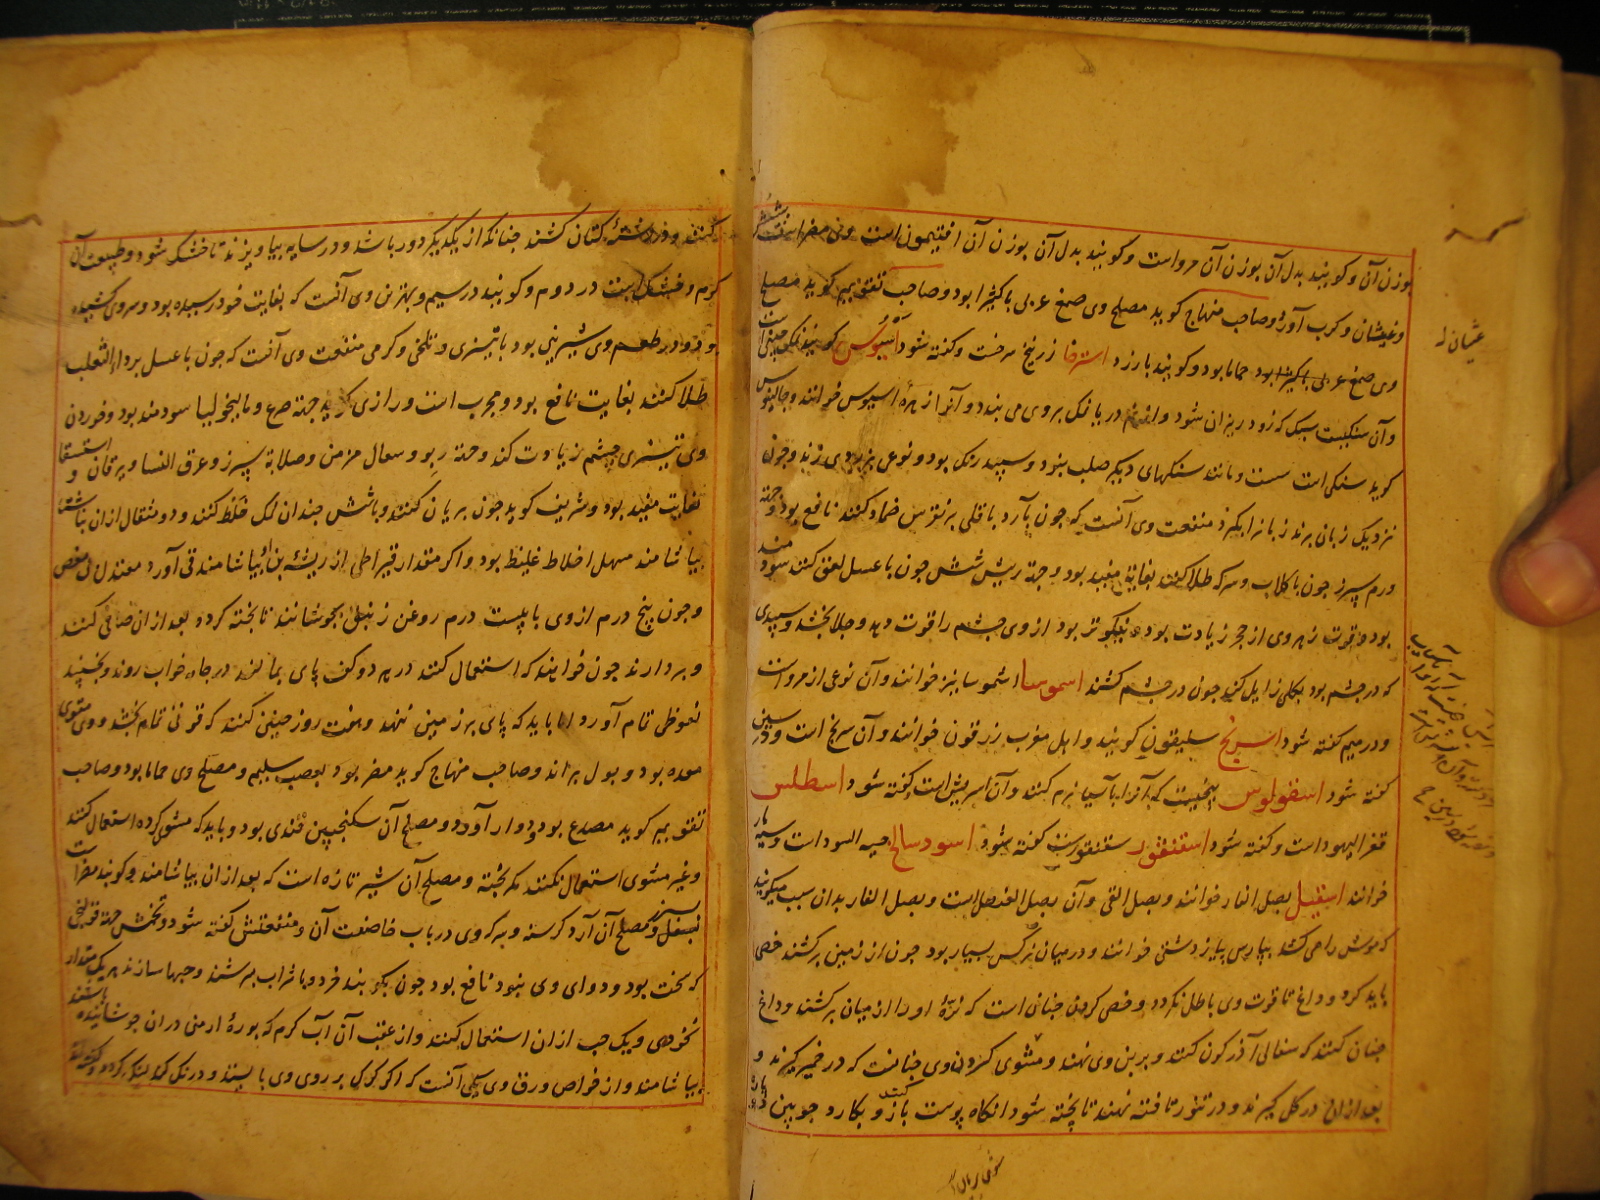 بوزن آن و کویند بدل آن بوزن آن مرو است و کویند بدل آن بوزن آن افتیمون است
و غثیان و کرب آورد و صاحب منهاج کوید مصلح وی صمغ عربی با کثیرا بود و صاحب تقویم کوید مصلح
وی صمغ عربی با کثیرا بود حماما بود و کویند بارزد استرخا زرنیخ سرخست و کفته شود اسیوس کویند نمک چینی است
و آن سنکیست سبک که زود ریزان شود و از نم دریا نمک بر وی می بندد و آنرا زهرۀ اسیوس خوانند و جالینوس
کوید سنکی است سست و مانند سنکهای دیکر صلب نبود و سپید رنک بود و نوعی بزردی زند و چون
نزدیک زبان برند زبانرا بکیرد منفعت وی آنست که چون با آرد باقلی بر نقرس ضماد کنند نافع بود و جهته
ورم سپرز چون با کلاب و سرکه طلا کنند بغایة مفید بود و جهة ریش شش چون با عسل لعق کنند سودمند
بود و قوت زهر وی از حجر زیادت بود و نیکوتر بود از وی چشم را قوت دهد و جلا بخشد و سپیدی
که در چشم بود بکلی زایل کند چون در چشم کشند اسموسا اشموسا نیز خوانند و آن نوعی از مرو است
و در میم کفته شود اسرنج سلیقون کویند و اهل مغرب زرقون خوانند و آن سرنج است و در سین
کفته شود اسفولوس بیخیست که آنرا با آسیا نرم کنند و آن اسریش است کفته شود اسطلس
قفر الیهود است و کفته شود اسقنقور سقنقورست کفته شود اسود سالح حیه السودا است و سیه مار
خوانند اسقیل بصل الفار خوانند و بصل القی و آن بصل العنصل است و بصل الفار بدان سبب میکویند
که موش را می کشد بپارسی پیاز دشتی خوانند و در میان نرکس بسیار بود چون از زمین برکشند خصی
باید کرد و داغ تا قوت وی باطل نکردد و خصی کردن چنانی است که نرۀ او را از میان برکشند و داغ
چنان کنند که سفالی آذرکون کنند و بر بن وی نهند و مشوی کردن وی چنانست که در خمیر کیرند و
بعد از ان در کل کیرند و در تنور تافته نهند تا پخته شود انکاه پوست باز کنند و بکارد چوبین
غثیان له
کنند و در رشتۀ کتان کشند چنانکه از یکدیکر دور باشد و در سایه بیاویزند تا خشک شود و طبیعت آن
کرم و خشک است در دوم و کویند در سیم و بهترین وی آنست که بغایت خود رسیده بود و سر وی کشیده
بود و در طعم وی شیرینی بود با تیزی و تلخی و کرمی منفعت وی آنست که چون با عسل بر داء الثعلب
طلا کنند بغایت نافع بود و مجرب است و رازی کوید جهته صرع و مالیخولیا سودمند بود و خوردن
وی تیزی چشم زیادت کند و جهته ربو و سعال مزمن و صلابة سپرز و عرق النسا و یرقان و استسقا
بغایت مفید بود و شریف کوید چون بریان کنند و با شش چندان نمک خلط کنند و دو مثقال از ان ناشتا
بیاشامند مسهل اخلاط غلیظ بود و اکر مقدار قیراطی از ریشۀ بن او بیاشامند قی آورد معتدل بی مغص
و چون پنج درم از وی با بیست درم روغن زنبق بجوشانند تا پخته کردد بعد از ان صافی کنند
و بردارند چون خواهند که استعمال کنند در هر دو کف پای بمالند در جامه خواب روند و بخسپند
نعوظی تمام آورد اما باید که پای بر زمین ننهد و هفت روز چنین کنند که قوتی تمام بخشد و وی مقوی
معده بود و بول براند و صاحب منهاج کوید مضر بود بعصب سلیم و مصلح وی حماما بود و صاحب
تقویم کوید مصدع بود و دوار آورد و مصلح آن سکنجبین قندی بود و باید که مشوی کرده استعمال کنند
و غیر مشوی استعمال نکنند مکر پخته و مصلح آن شیر تازه است که بعد از ان بیاشامند و کویند مضر است
بسفل و مصلح آن آرد کرسنه و سرکه وی در باب خا صنعت آن و منفعتش کفته شود و تخمش جهة قولنجی
که سخت بود و دوای وی نبود نافع بود چون بکوبند خرد و با شراب بسرشند و حبها سازند هر یک مقدار
نخودی و یک حب از ان استعمال کنند و از عقب آن آب کرم که بورۀ ارمنی در ان جوشانیده باشند
بیاشامند و از خواص ورق وی یکی آنست که اکر کرک بر روی وی بایستد و درنک کند لنک کردد